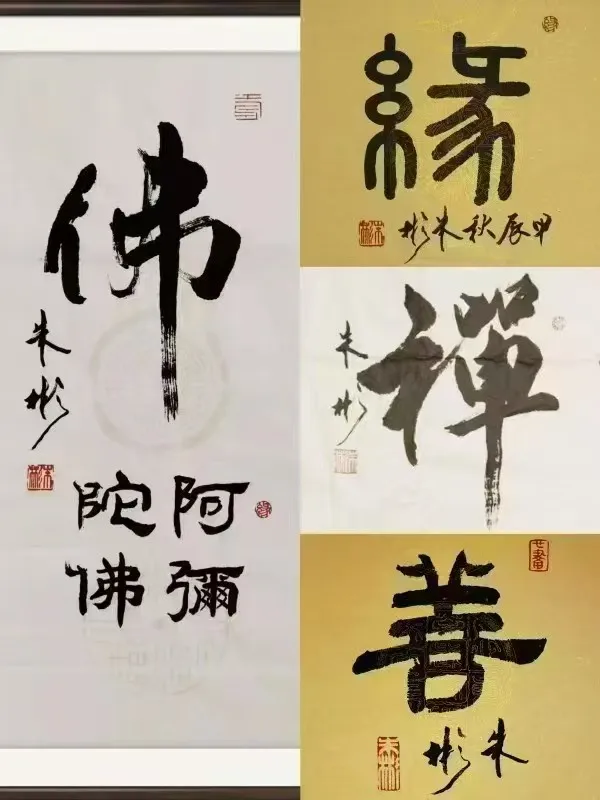 佛
朱彬
阿彌
陀佛
緣
甲辰秋朱彬
禪
朱彬
善
朱彬